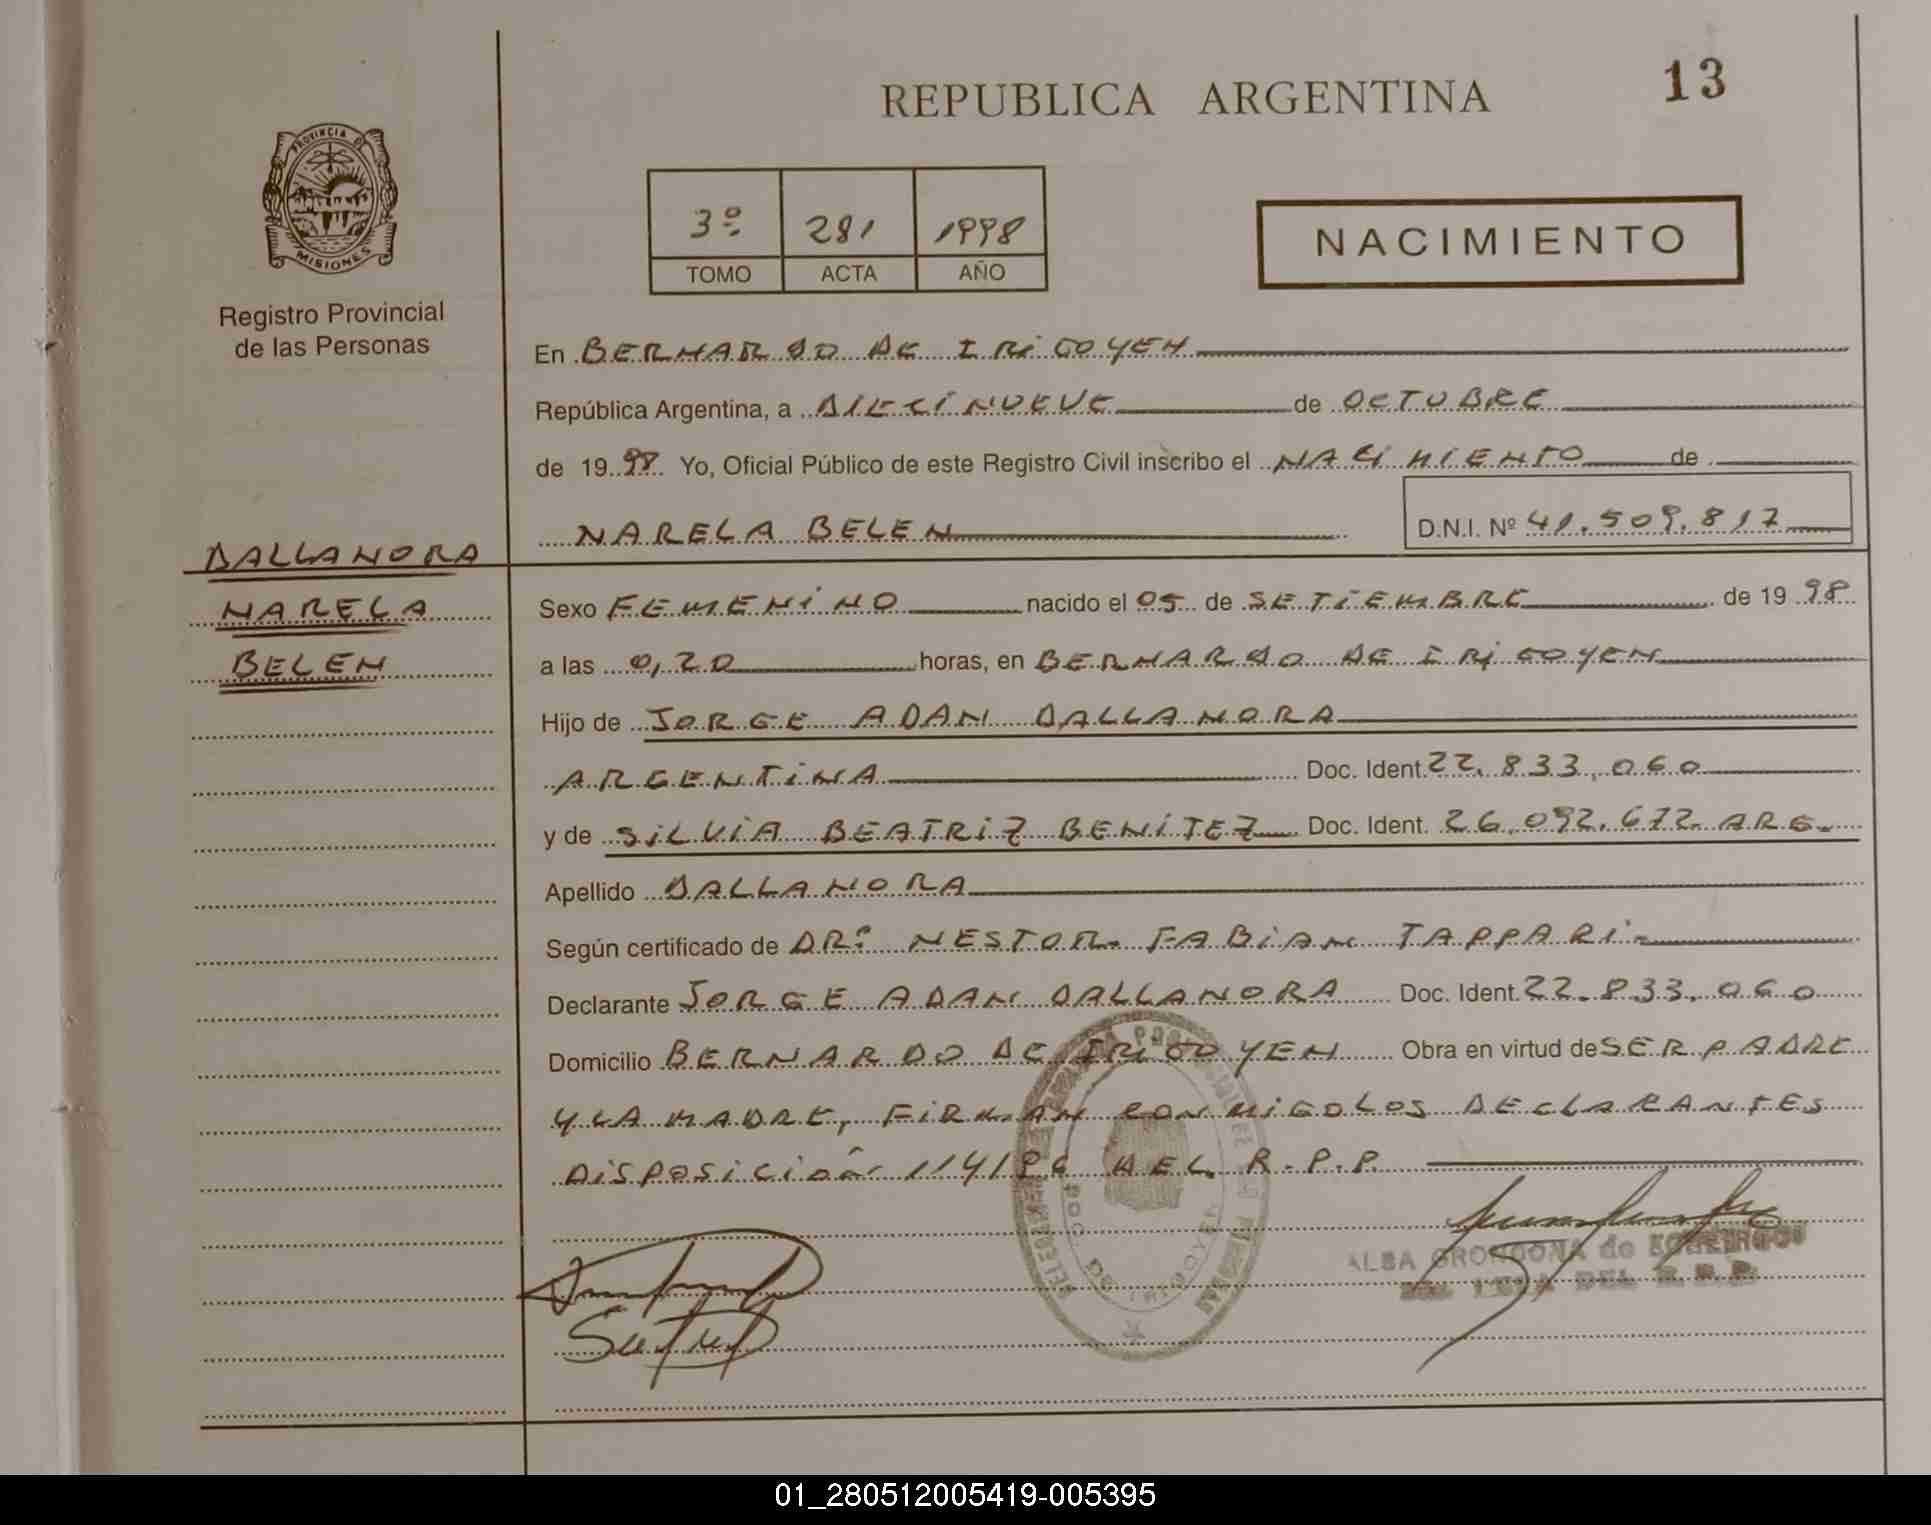 REPUBLICA ARGENTINA
13
PROVINCIA DE
MISIONES
Registro Provincial
de las Personas
3º 281 1998
TOMO ACTA AÑO
NACIMIENTO
En BERNARDO DE IRIGOYEN
República Argentina, a DIECINUEVE de OCTUBRE
de 1998 Yo, Oficial Público de este Registro Civil inscribo el NACIMIENTO de
NARELA BELEN
D.N.I. Nº 41.509.817
DALLANORA
NARELA
BELEN
Sexo FEMENINO nacido el 05 de SETIEMBRE de 1998
a las 0,20 horas, en BERNARDO DE IRIGOYEN
Hijo de JORGE ADAN DALLANORA
ARGENTINA Doc. Ident. 22.833.060
y de SILVIA BEATRIZ BENITEZ Doc. Ident. 26.092.672. ARG.
Apellido DALLANORA
Según certificado de DR. NESTOR FABIAN TAPPARI
Declarante JORGE ADAN DALLANORA Doc. Ident. 22.833.060
Domicilio BERNARDO DE IRIGOYEN Obra en virtud de SER PADRE
Y LA MADRE, FIRMAN CONMIGO LOS DECLARANTES
DISPOSICIÓN 114/86 DEL R.P.P.
ALBA GRONDONA de
DEL R.P.P.
01_280512005419-005395